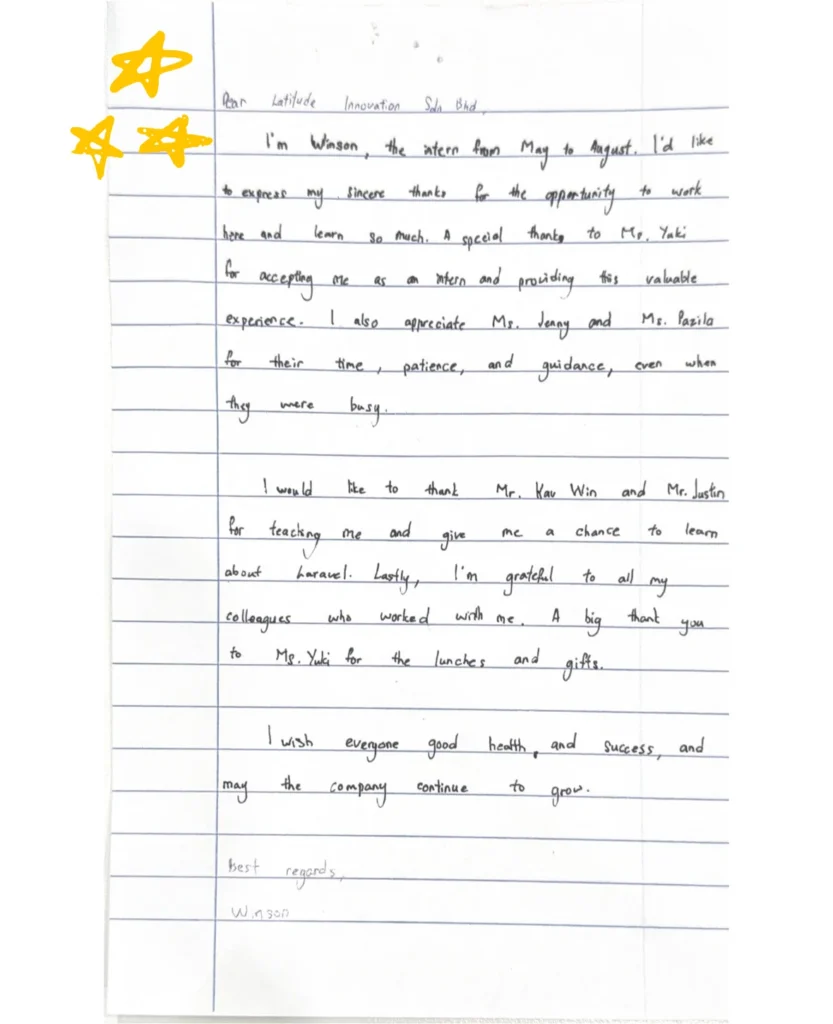 Dear Latitude Innovation Sdn Bhd,
I'm Winson, the intern from May to August. I'd like
to express my sincere thanks for the opportunity to work
here and learn so much. A special thanks to Ms. Yuki
for accepting me as an intern and providing this valuable
experience. I also appreciate Ms. Jenny and Ms. Pazila
for their time, patience, and guidance, even when
they were busy.
I would like to thank Mr. Kav Win and Mr. Justin
for teaching me and give me a chance to learn
about Laravel. Lastly, I'm grateful to all my
colleagues who worked with me. A big thank you
to Ms. Yuki for the lunches and gifts.
I wish everyone good health, and success, and
may the company continue to grow.
Best regards,
Winson